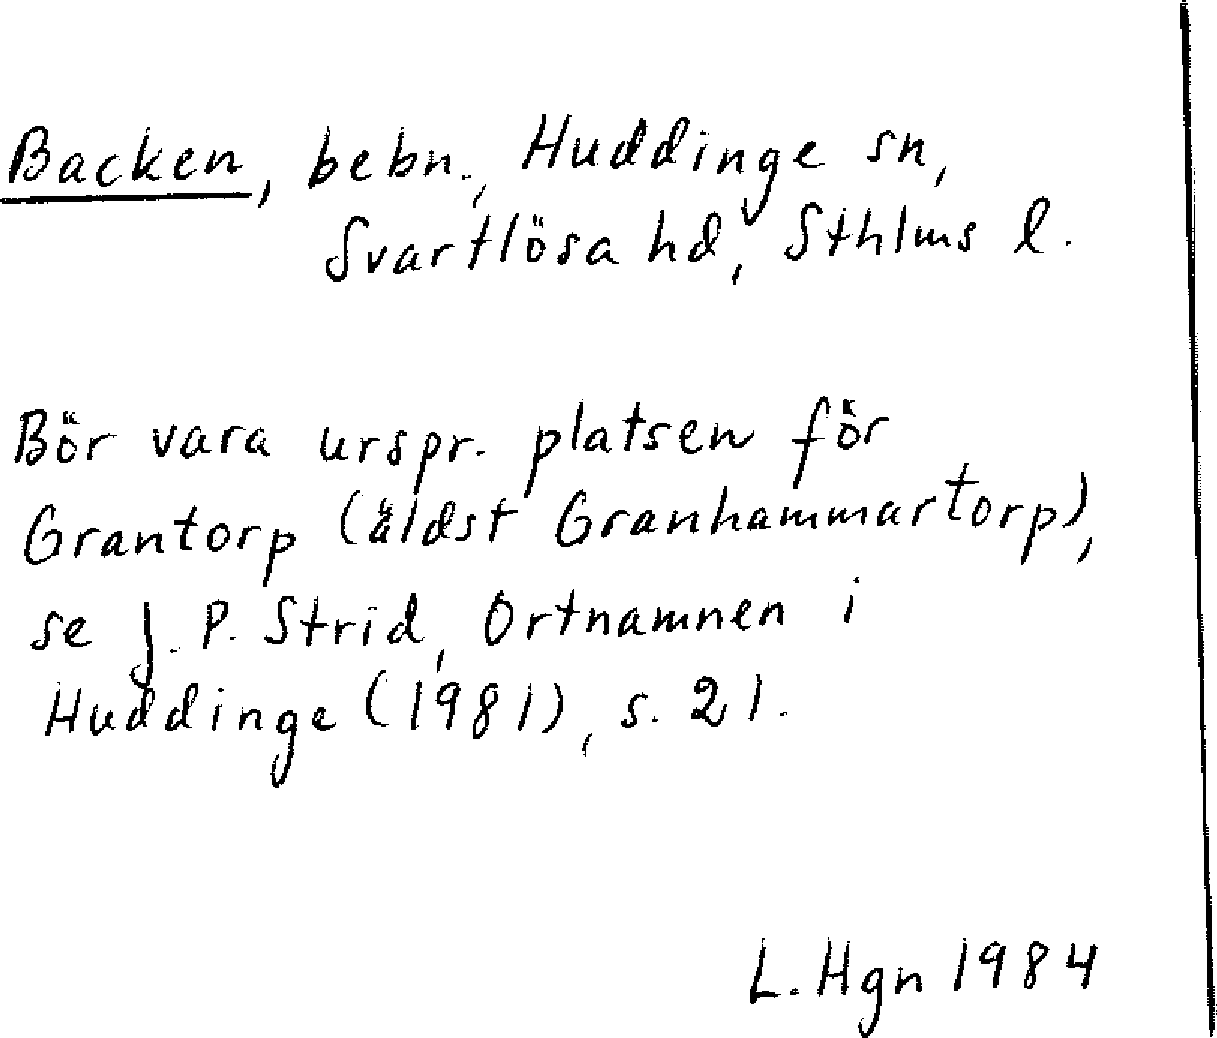 Backen, bebn., Huddinge sn,
Svartlösa hd, Sthlms l.
Bör vara urspr. platsen för
Grantorp (äldst Granhammartorp),
se J. P. Strid, Ortnamnen i
Huddinge (1981), s. 21.
L. Hgn 1984